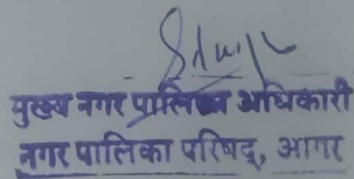 मुख्य नगर पालिका अधिकारी
नगर पालिका परिषद्, आगर